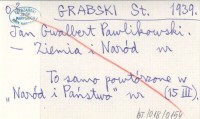 GRABSKI St. 1939.
Jan Gwalbert Pawlikowski.
– Ziemia i Naród nr
To samo powtórzone w
„Naród i Państwo" nr (15 III).
BT/018/0154